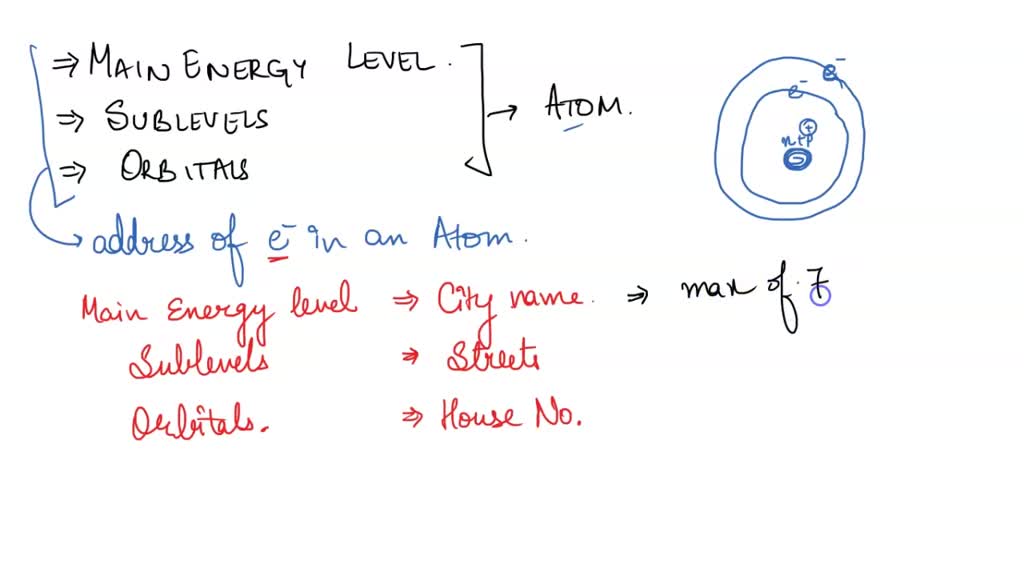 ⇒ MAIN ENERGY LEVEL.
⇒ SUBLEVELS
⇒ ORBITALS
→ ATOM.
e⁻
e⁻
+
n+p
address of e⁻ in an Atom.
Main Energy level ⇒ City name. ⇒ max of 7
Sublevels ⇒ Streets
Orbitals. ⇒ House No.